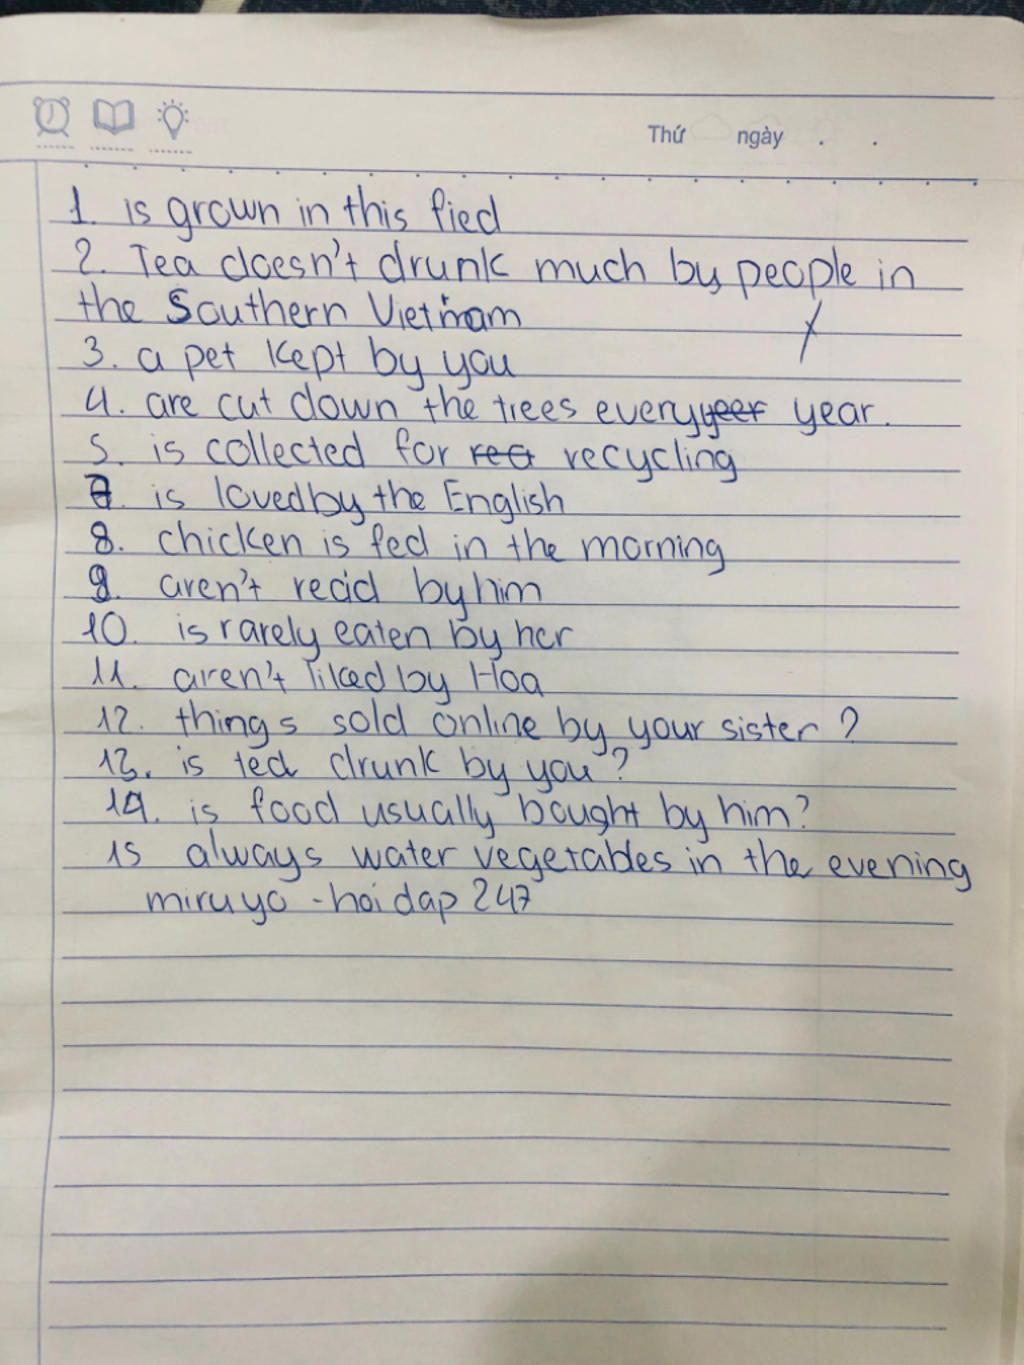 Thứ ngày . .
1. is grown in this fied
2. Tea doesn't drunk much by people in
the Southern Vietnam
3. a pet kept by you
4. are cut down the trees every yeer year.
5. is collected for rec recycling
7. is loved by the English
8. chicken is fed in the morning
9. aren't read by him
10. is rarely eaten by her
11. aren't liked by Hoa
12. things sold online by your sister ?
13. is tea drunk by you ?
14. is food usually bought by him?
15 always water vegetables in the evening
miruyo - hoidap 247